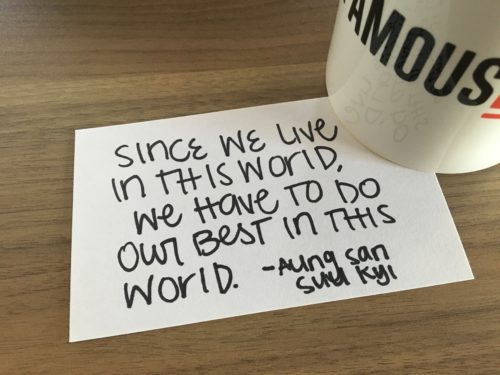 FAMOUS
SINCE WE LIVE
IN THIS WORLD,
WE HAVE TO DO
OUR BEST IN THIS
WORLD. -AUNG SAN
SUU KYI